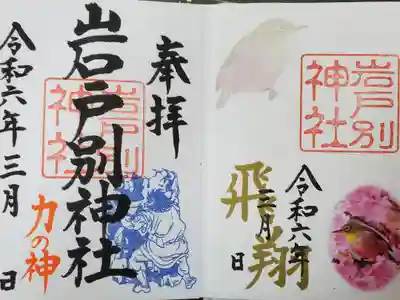 奉拝
岩戸別神社
岩戸別
神社
力の神
令和六年三月 日
岩戸別
神社
令和六年
三月 日
飛翔